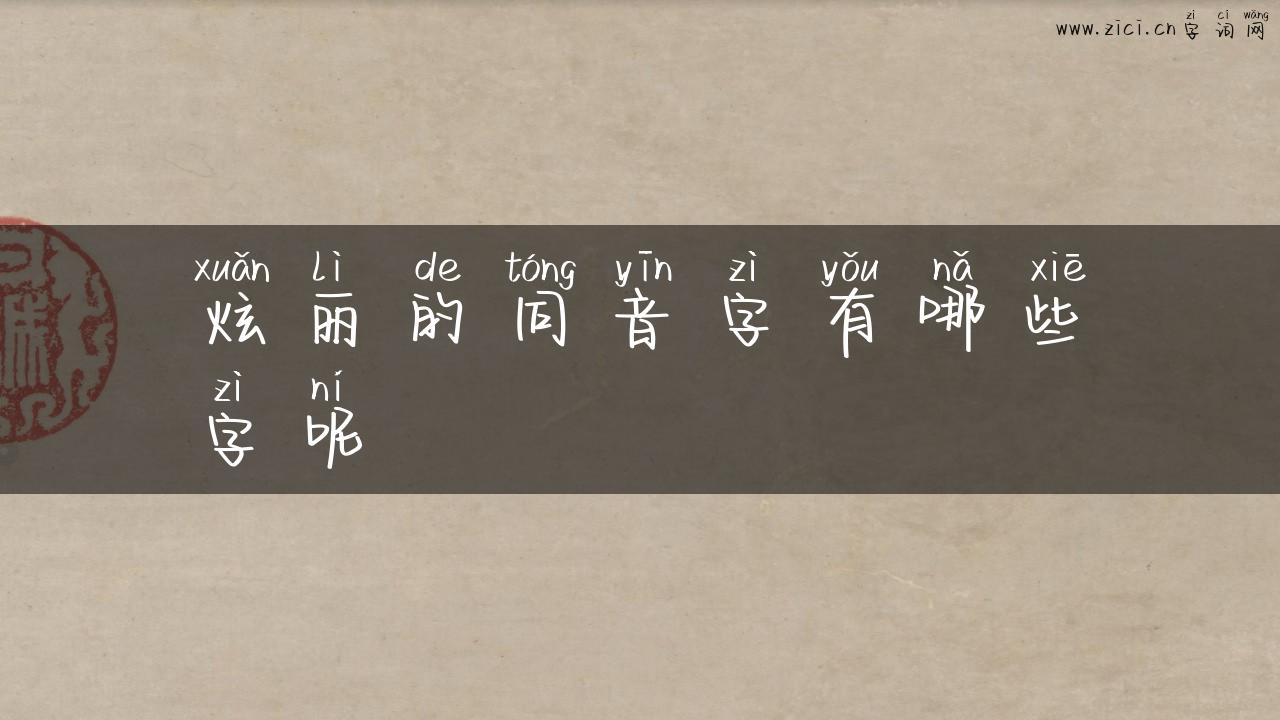 zì cí wǎng
www.zici.cn 字词网
xuǎn lì de tóng yīn zì yǒu nǎ xiē
炫丽的同音字有哪些
zì ní
字呢